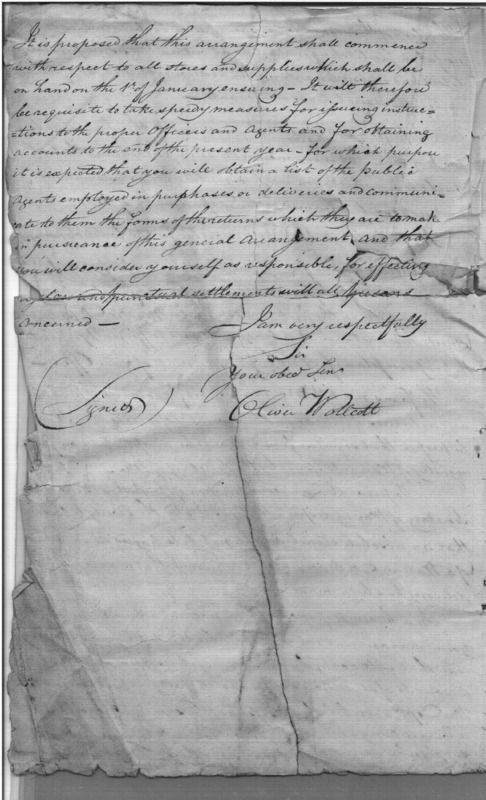 It is proposed that this arrangement shall commence
with respect to all stores and supplies which shall be
on hand on the 1st of January ensuing – It will therefore
be requisite to take speedy measures for issueing instruc=
=ctions to the proper Officers and Agents and for obtaining
accounts to the end of the present year – for which purpose
it is expected that you will obtain a list of the public
Agents employed in purchases or deliveries and communi=
cate to them the forms of the returns which they are to make
in pursuance of this general arrangement, and that
you will consider yourself as responsible, for effecting
and punctual settlements with all persons
concerned –
I am very respectfully
Sir
Your obed Serv
(Signed) Oliver Wolcott